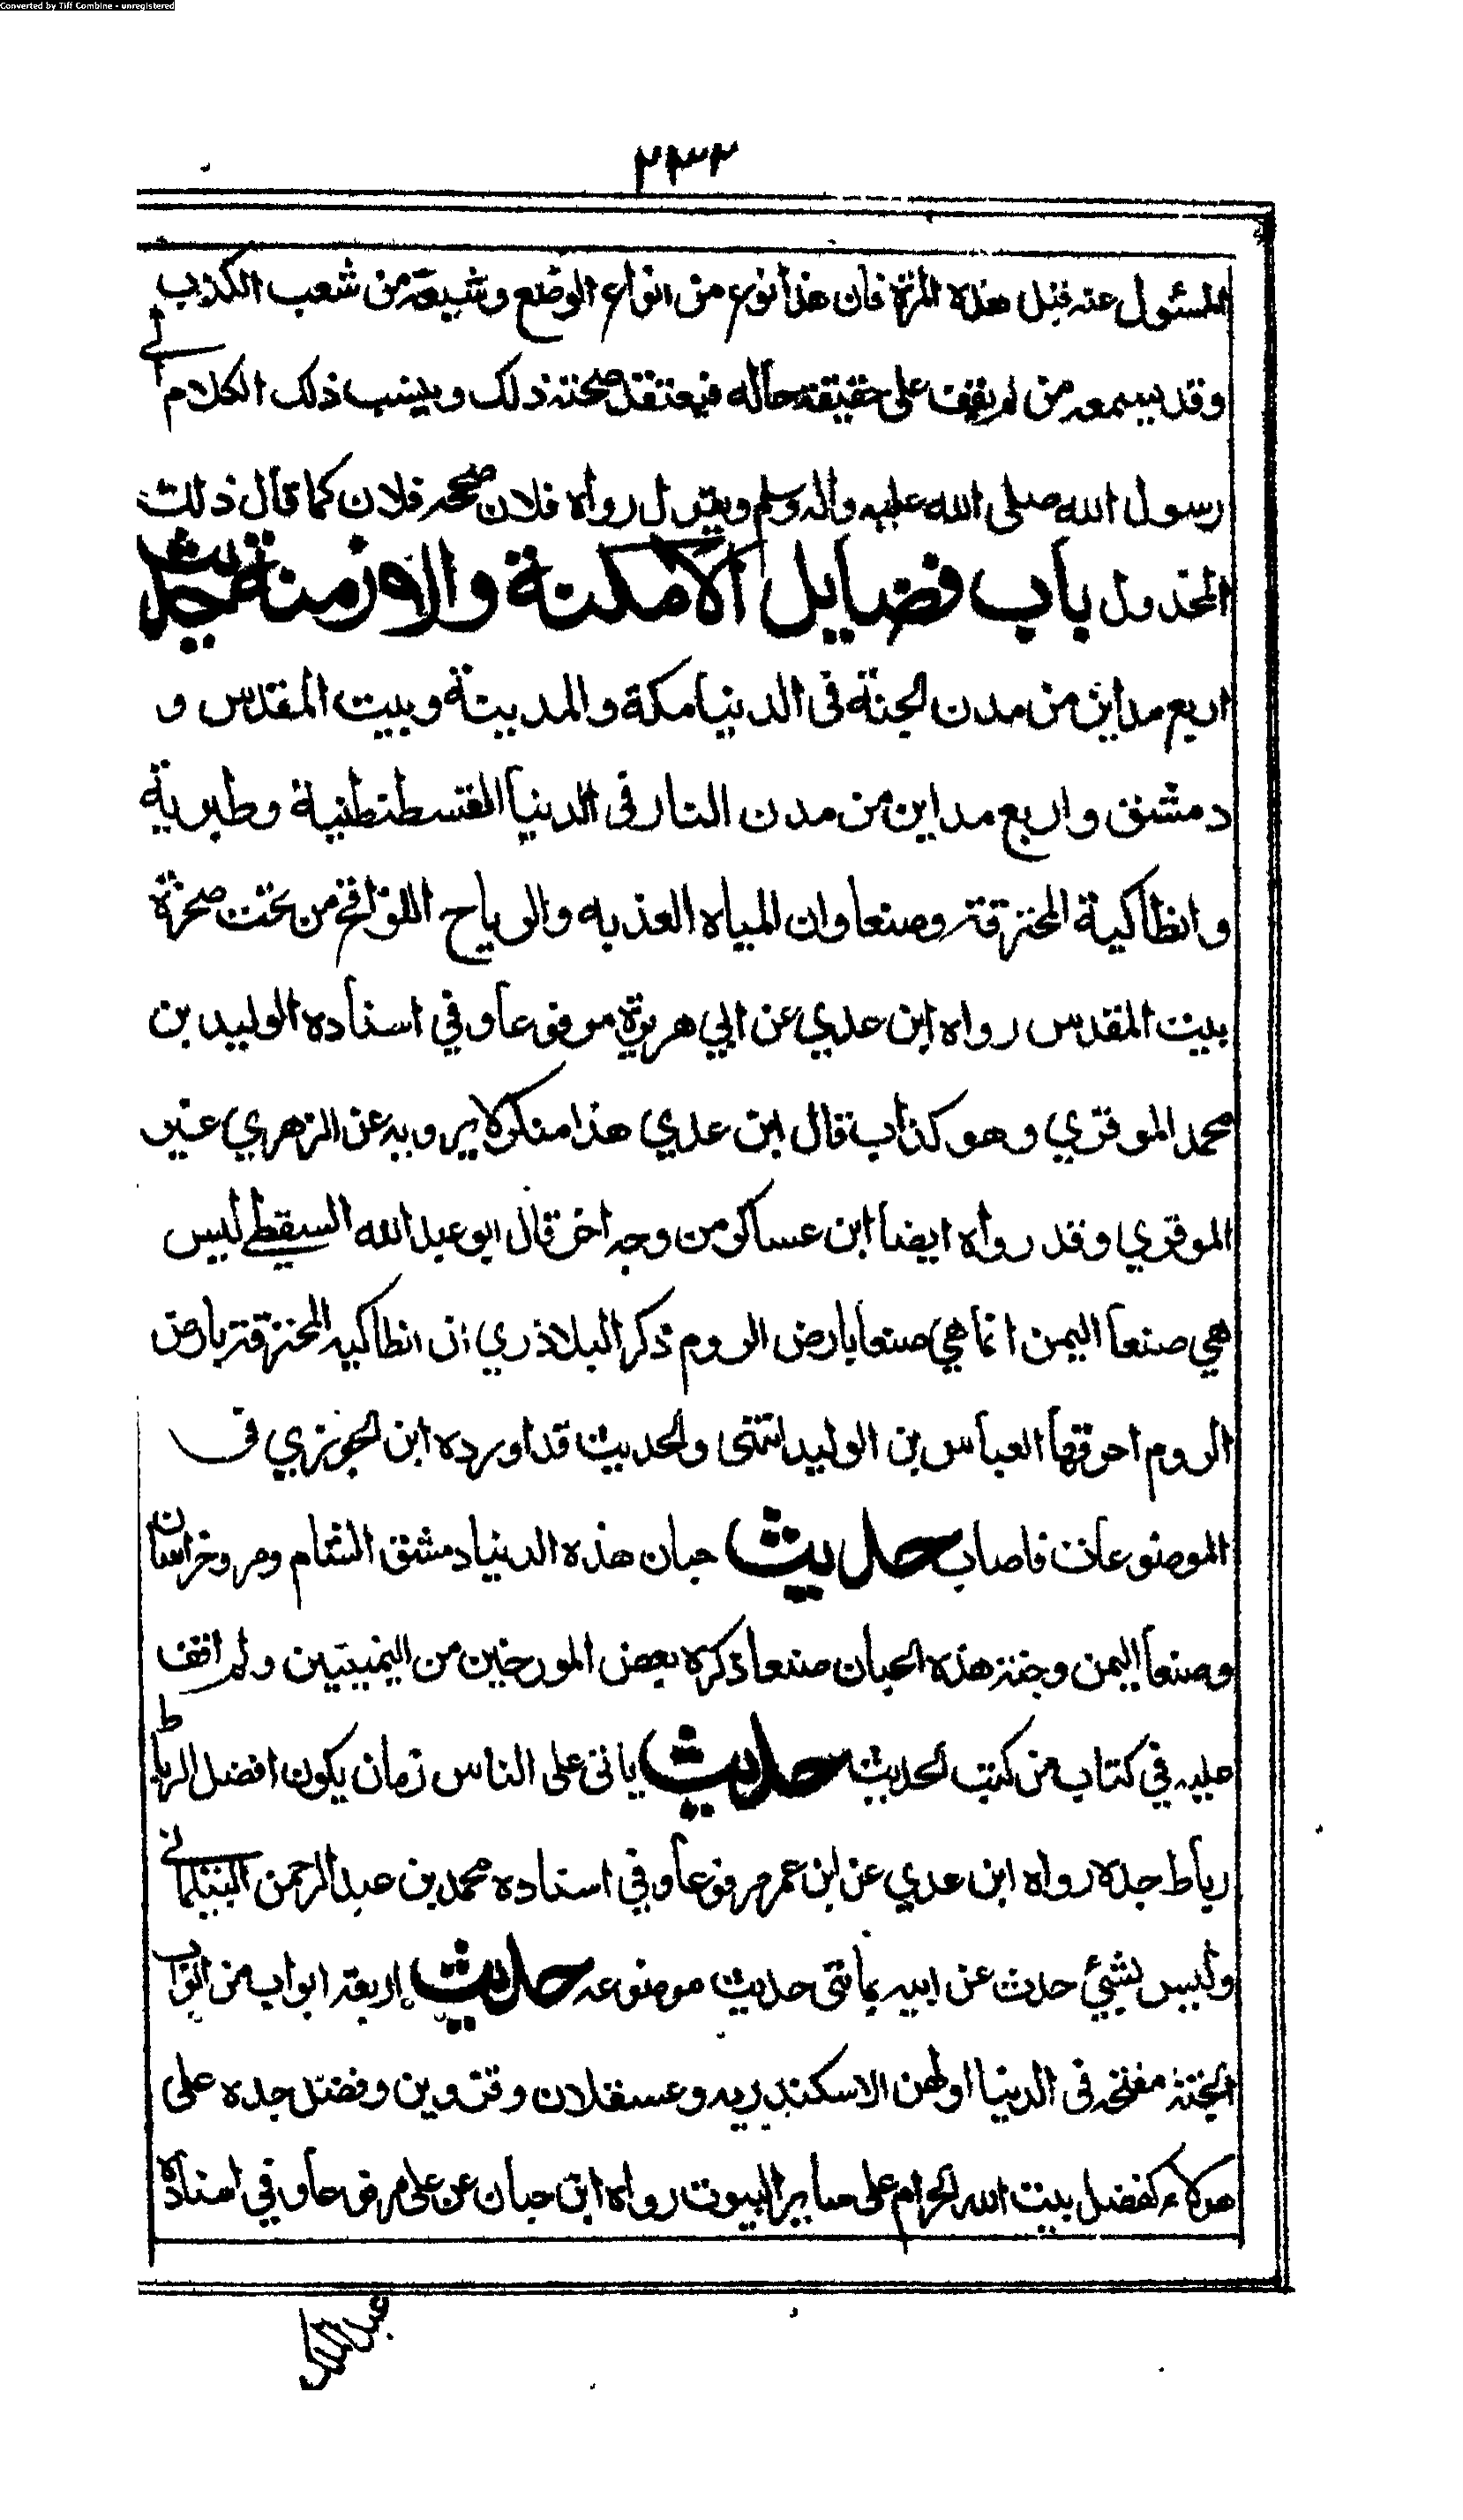 Converted by Tiff Combine - unregistered
٢٣٢
المسئول عنه قبل هذه المرة فان هذا نوع من انواع الوضع وشعبة من شعب الكذب
وقد يسمعه من لم يقف على حقيقة حاله فيعتقد صحته ذلك وينسب ذلك الكلام الى
رسول الله صلى الله عليه واله وسلم ويقول رواه فلان صححه فلان كما قال ذلك
المخذول باب فضايل الامكنة والازمنة حديث
اربع مداين من مدن الجنة فى الدنيا مكة والمدينة وبيت المقدس و
دمشق واربع مداين من مدن النار فى الدنيا القسطنطنية وطبرية
وانطاكية المحترقة وصنعا وان المياه العذبه والرياح اللواقح من تحت صخرة
بيت المقدس رواه ابن عدي عن ابي هريرة مرفوعا وفي اسناده الوليد بن
محمد الموقري وهو كذاب قال ابن عدي هذا منكر لا يرويه عن الزهري غير
الموقري وقد رواه ايضا ابن عساكر من وجه اخر قال ابو عبد الله السقطي ليس
هي صنعا اليمن انما هي صنعا بارض الروم ذكر البلاذري ان انطاكيه المحترقة بارض
الروم احرقها العباس بن الوليد انتهى والحديث قد اورده ابن الجوزي فى
الموضوعات فاصاب حديث جبان هذه الدنيا دمشق الشام ومرو خراسان
وصنعا اليمن وجنة هذه الجبان صنعا ذكره بعض المورخين من اليمنيين ولم اقف
عليه في كتاب من كتب الحديث حديث ياتى على الناس زمان يكون افضل الرباط
رباط جده رواه ابن عدي عن ابن عمر مرفوعا وفي اسناده محمد بن عبد الرحمن البيلمانى
وليس بشيئ حدث عن ابيه بمائتى حديث موضوعه حديث اربعة ابواب من ابواب
الجنة مفتحه فى الدنيا اولهن الاسكندريه وعسقلان وقزوين وفضل جده على
هولاء كفضل بيت الله الحرام على ساير البيوت رواه ابن حبان عن على مرفوعا وفي اسناده